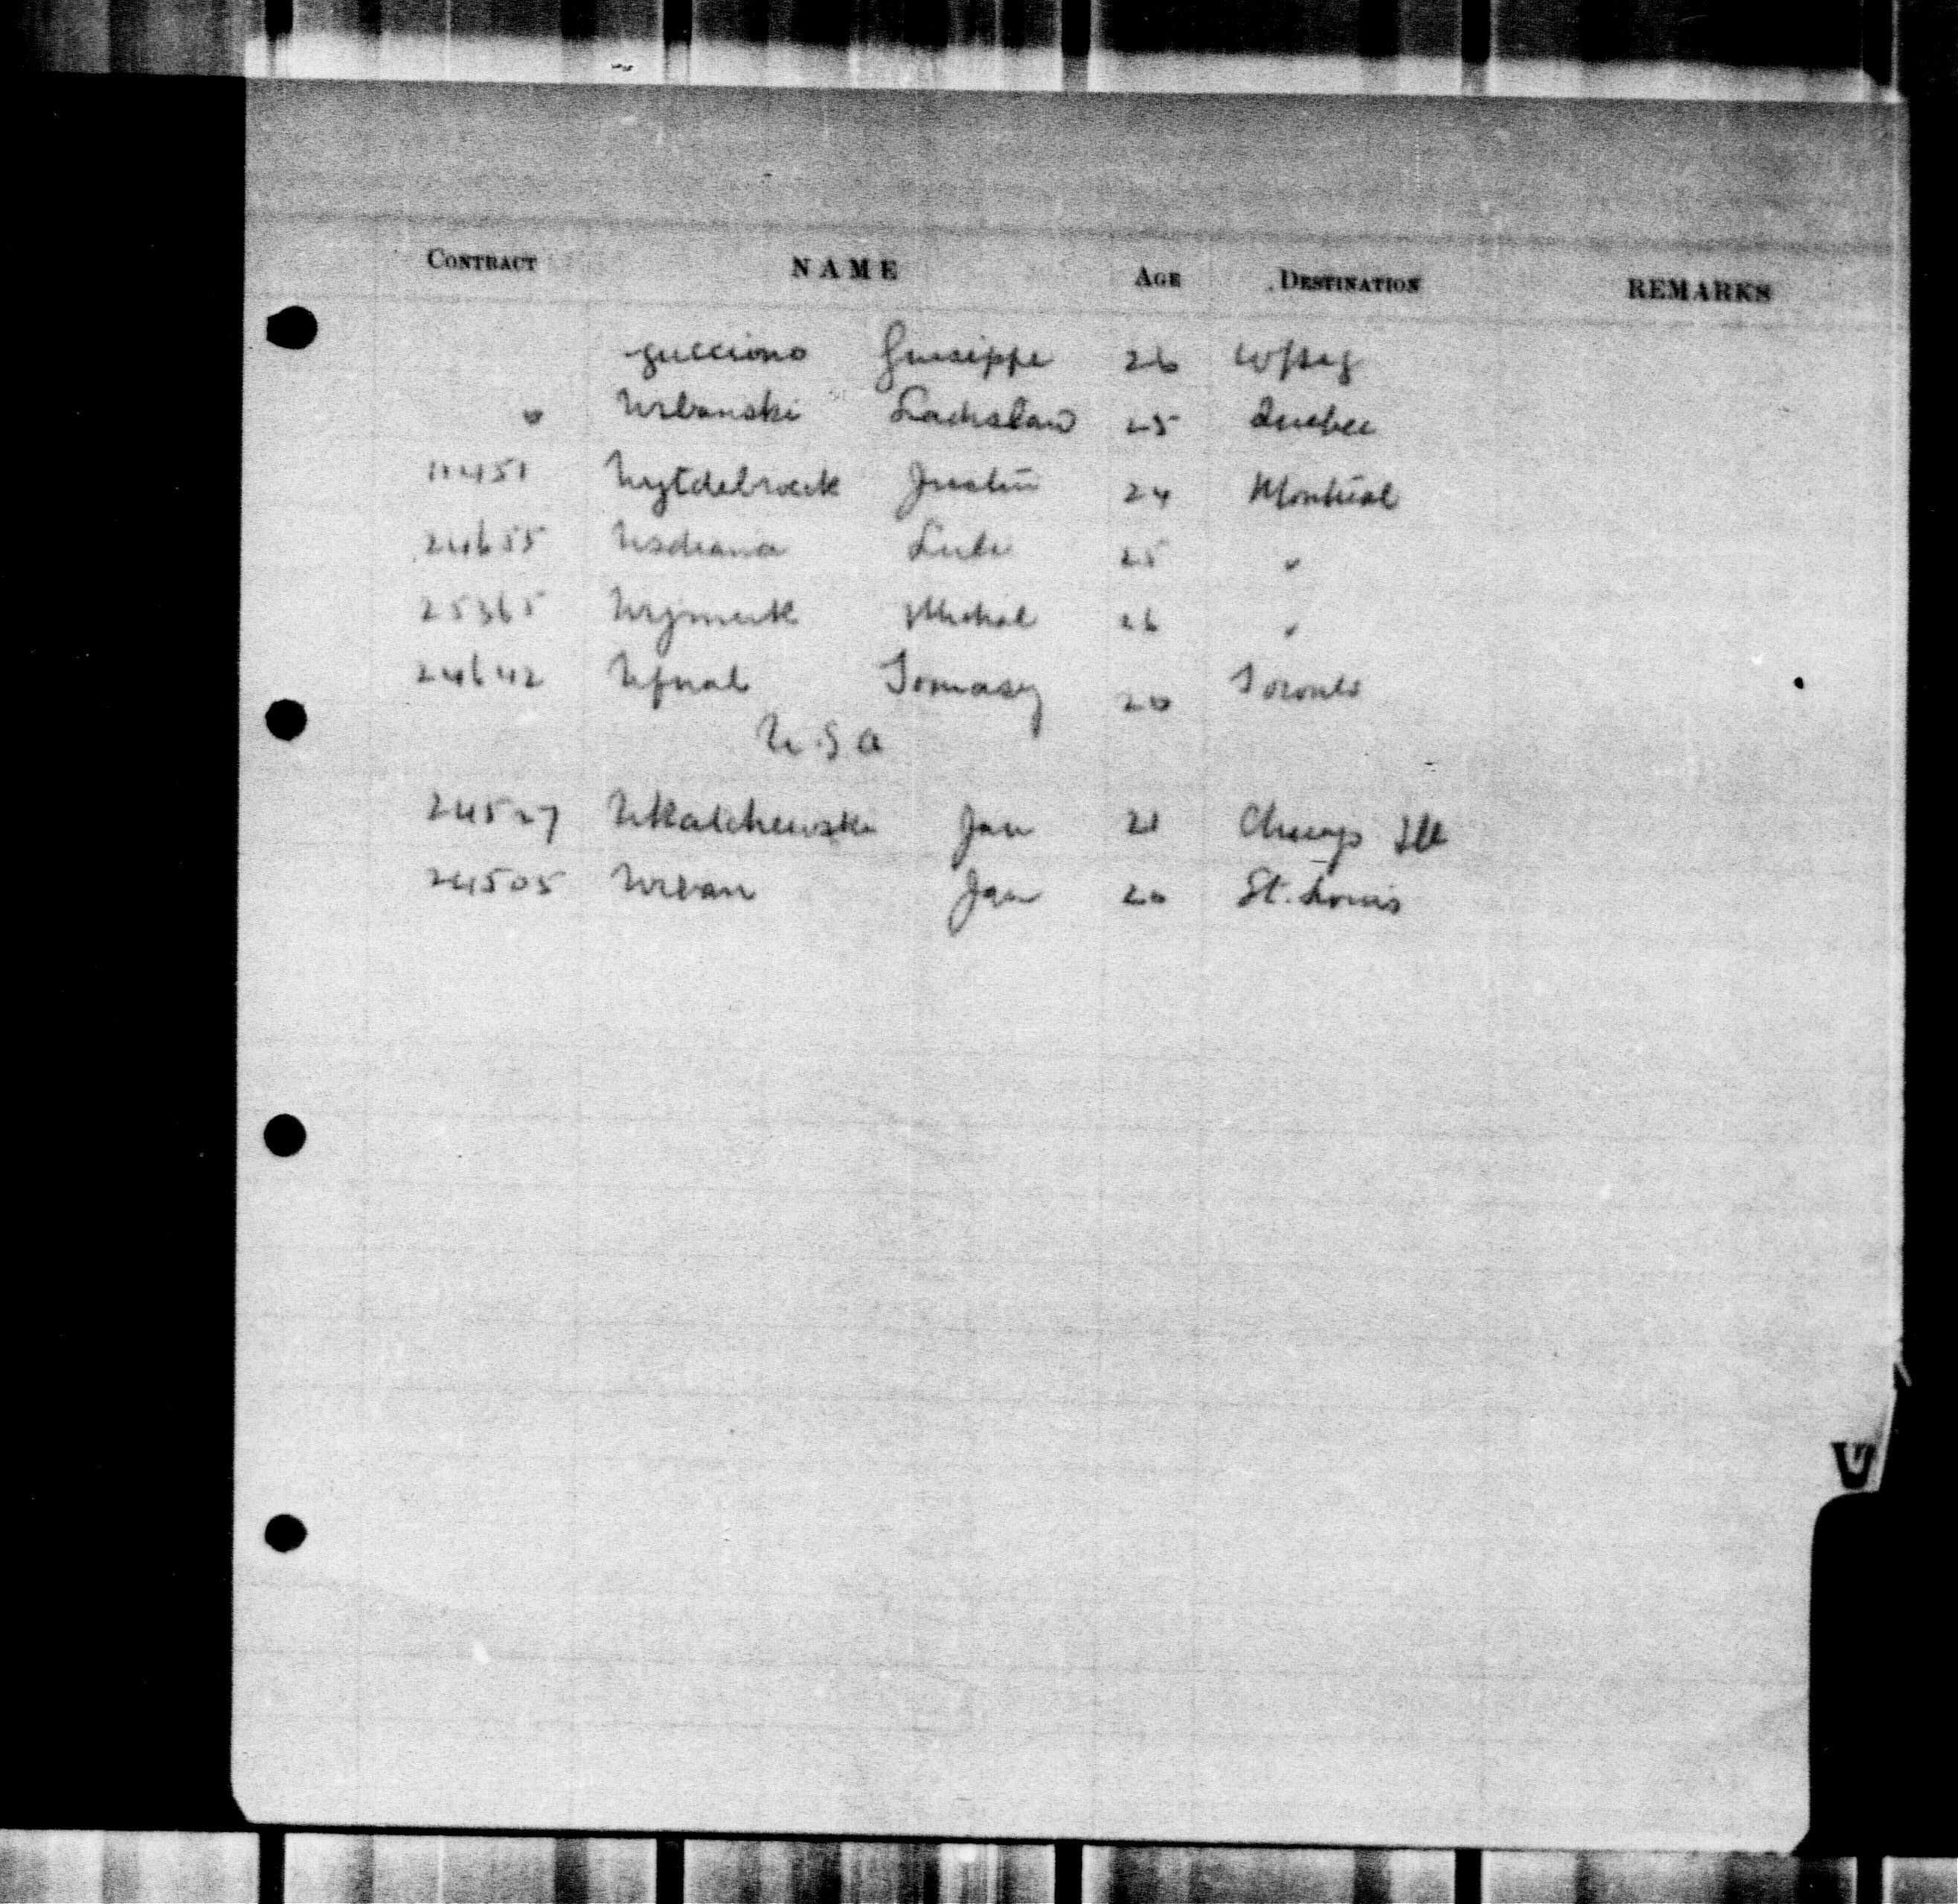 CONTRACT NAME AGE DESTINATION REMARKS
Giuseppe 26 W/peg
" Urbanski Ladislaw 25 Quebec
11451 Uytdebroek Justin 24 Montreal
24655 25 "
25365 Michal 26 "
24642 Ufnal Tomasz 20 Toronto
U.S.A
24527 Jan 21 Chicago Ill
24505 Urban Jan 20 St. Louis
U